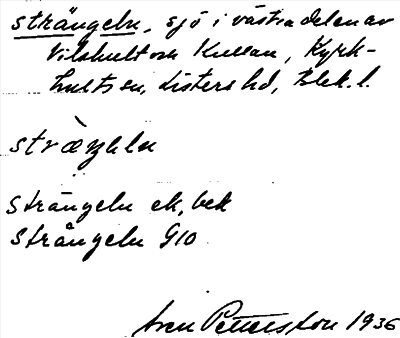 strängeln, sjö i västra delen av
Vilshult och Kullan, Kyrk-
hults sn, Listers hd, Blek. l.
stræŋeln
Strängeln ek, bek
Strångeln G10
Sven Petterson 1936